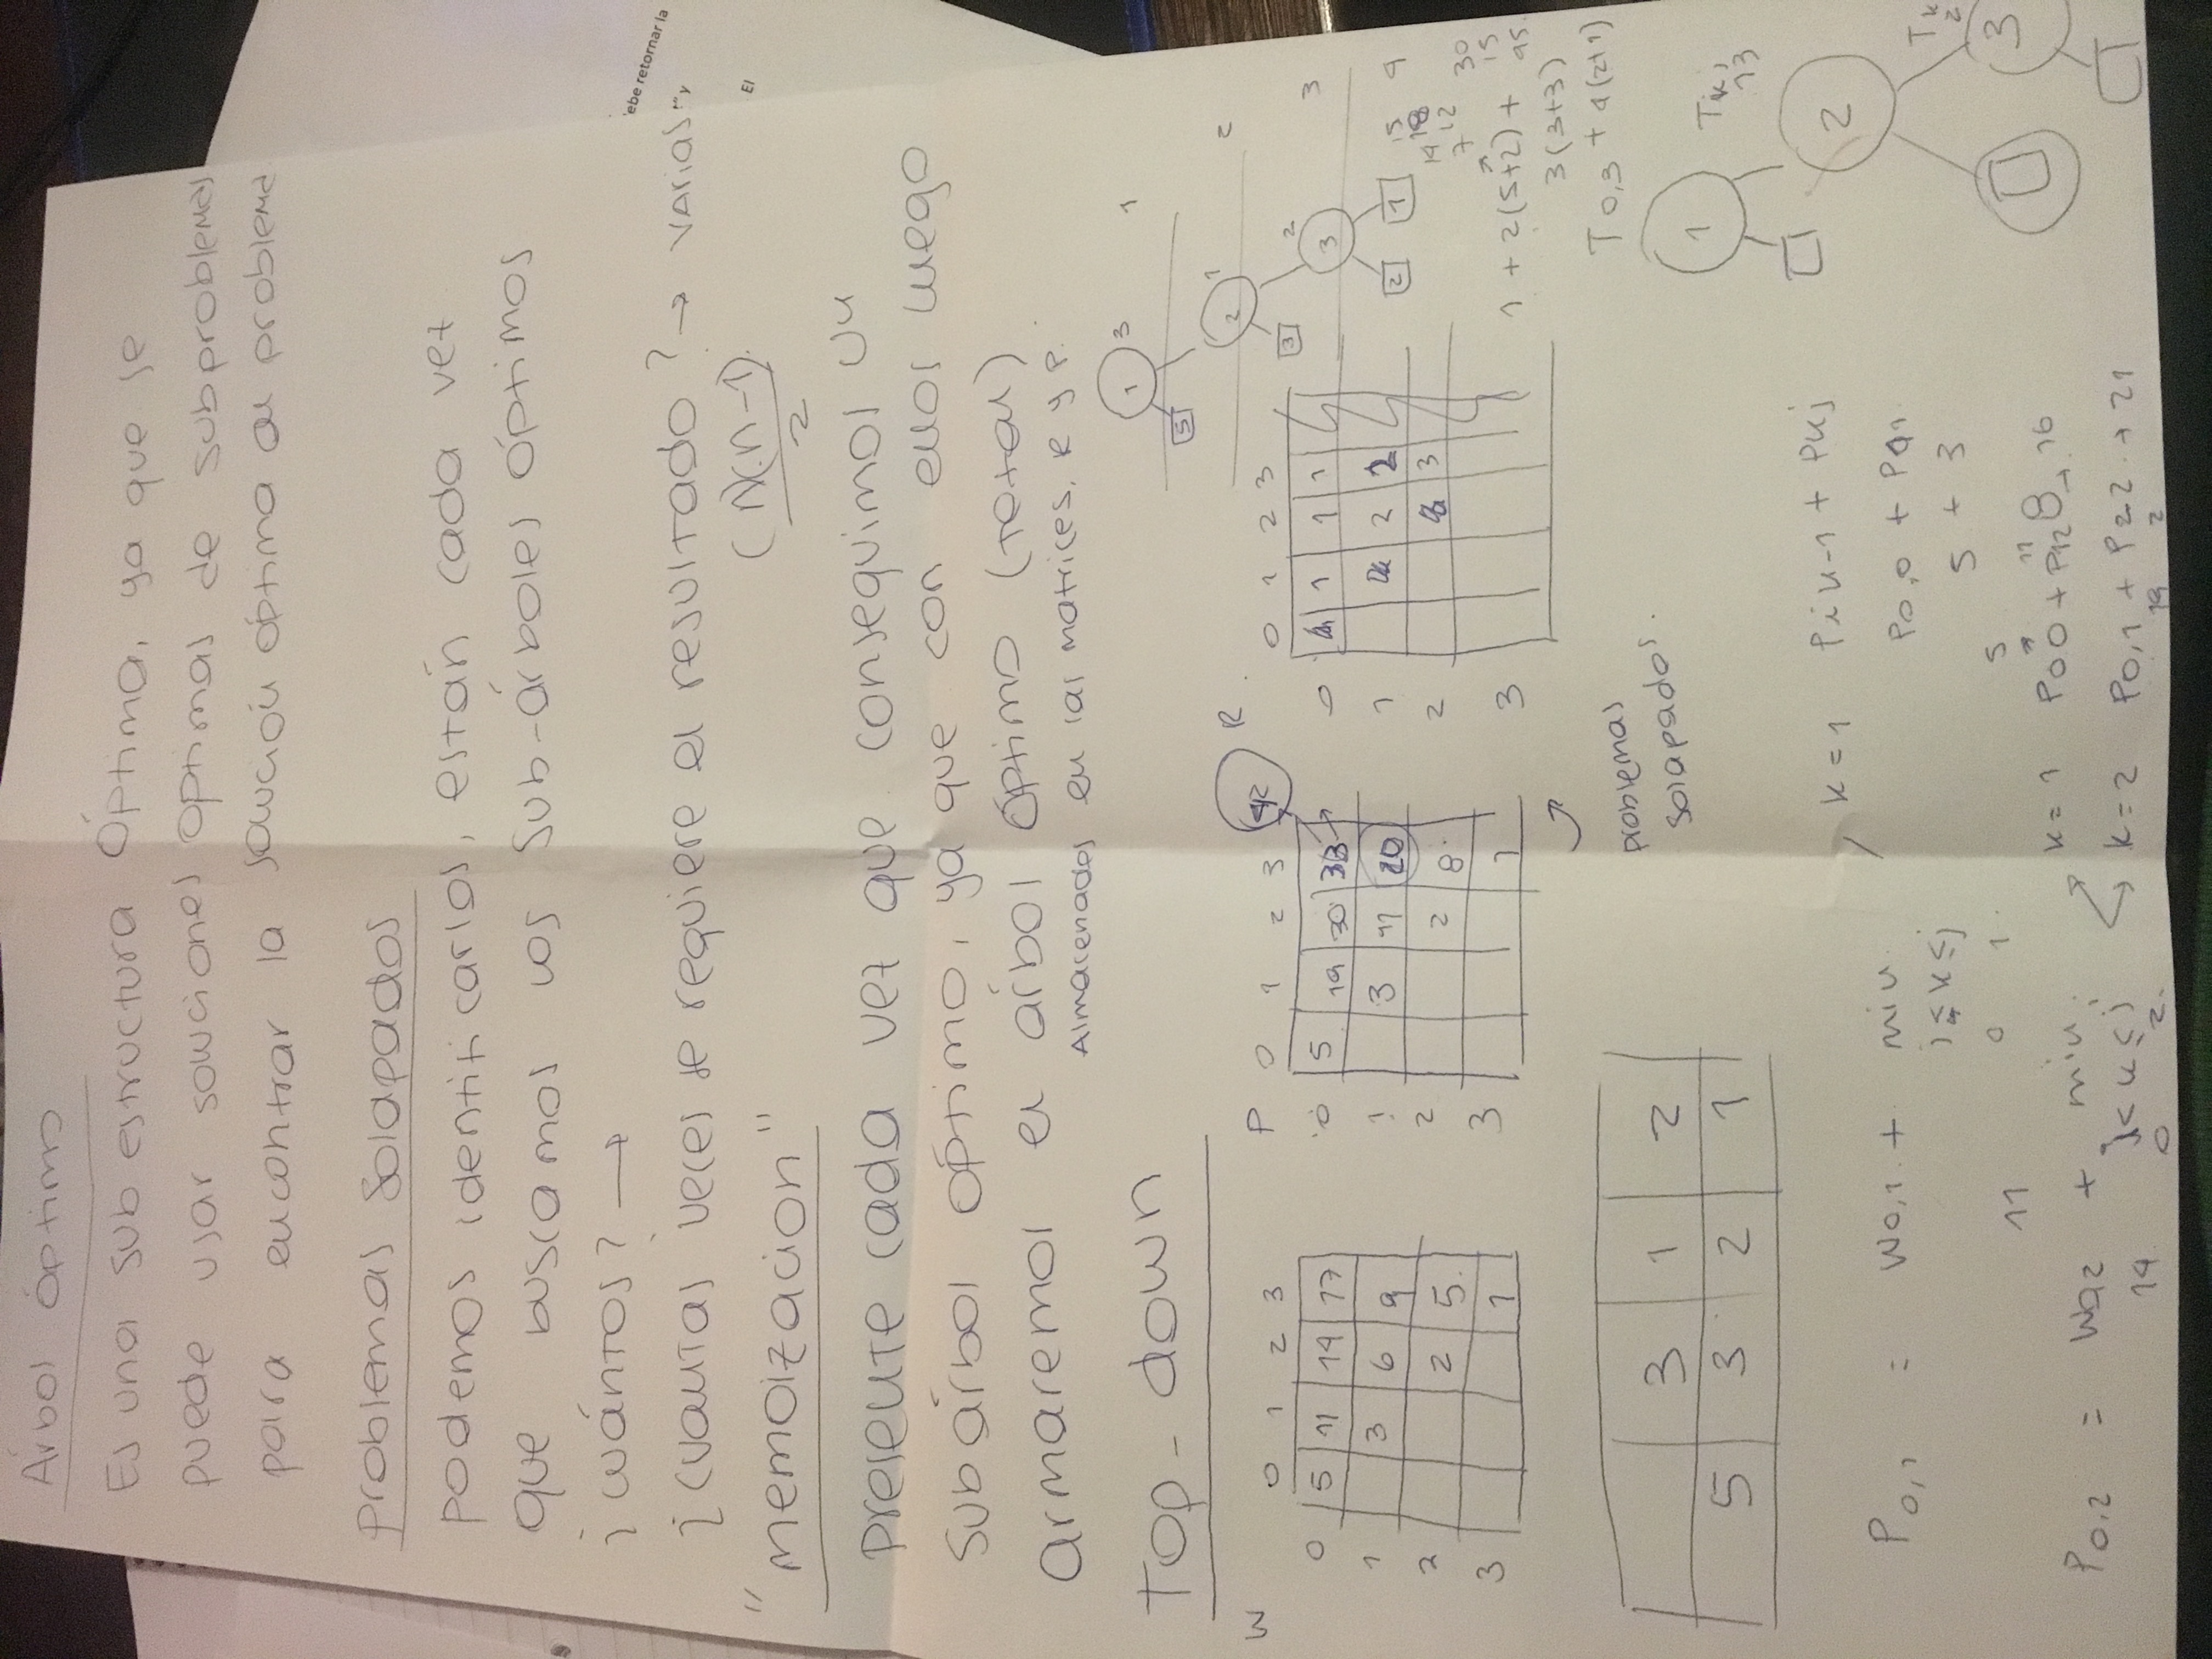 Árbol óptimo
Es una sub estructura óptima, ya que se
puede usar soluciones óptimas de subproblemas
para encontrar la solución óptima al problema
problemas solapados
podemos identificarlos, están cada vez
que buscamos los sub-árboles óptimos
¿cuántos? →
¿cuantas veces se requiere el resultado? → varias
(n)(n-1)
2
"memoización"
presente cada vez que conseguimos un
subárbol óptimo, ya que con ellos luego
armaremos el árbol óptimo (total)
Almacenados en las matrices, R y P.
Top-down
ebe retornar la
El
1 3 1
5
2 1 2
3
3 2 3
2 1 4
W
0 1 2 3
0 5 11 14 17
1 3 6 9
2 2 5
3 1
P
0 1 2 3 42
0 5 19 30
1 3 11 20
2 2 8
3 1
R
0 1 2 3
0 1 1 1
1 2 2
2 3
3
15
18
14 12
7
30
15
45
1 + 2(5+2) +
3(3+3)
T0,3 + 4(2+1)
problemas
solapados.
3 1 2
5 3 2 1
1 Tkj
13
2
3
P0,1 = W0,1 + min
i≤k≤j
0 1
11
k=1 Pik-1 + Pkj
P0,0 + P
5 + 3
P0,2 = W0,2 + min
i<k≤j
14 0 2
k=1 P00 + P12 → 16
5 11
k=2 P0,1 + P22 → 21
19 2